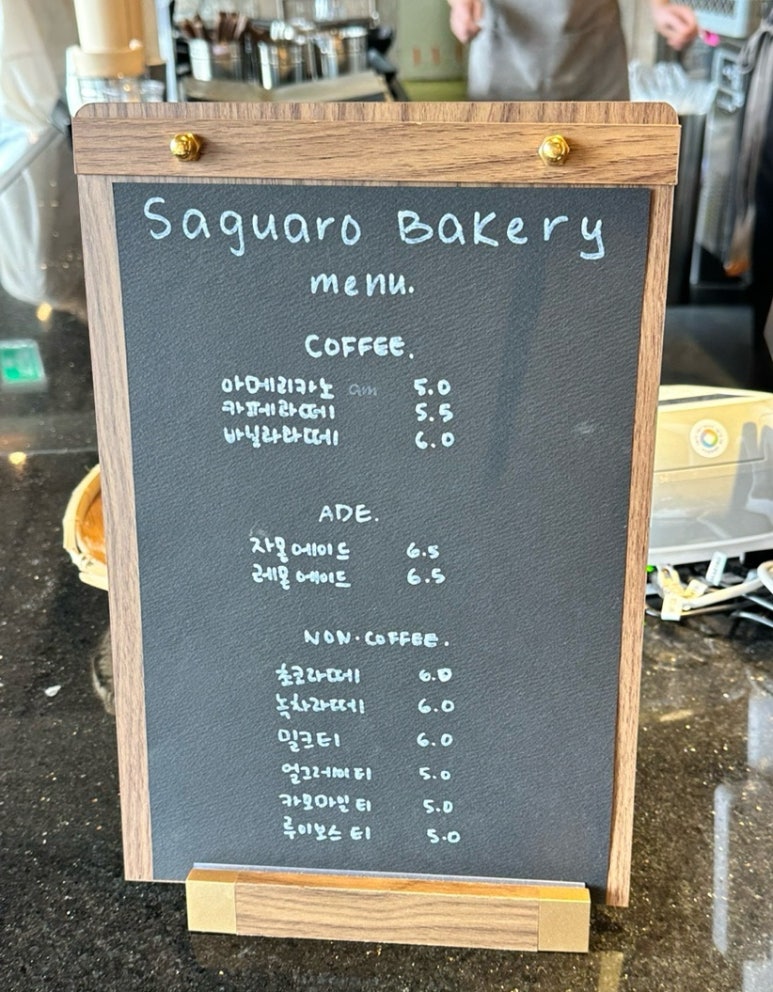 Saguaro Bakery
menu.
COFFEE.
아메리카노 am 5.0
카페라떼 5.5
바닐라라떼 6.0
ADE.
자몽에이드 6.5
레몬에이드 6.5
NON-COFFEE.
초코라떼 6.0
녹차라떼 6.0
밀크티 6.0
얼그레이티 5.0
카모마일티 5.0
루이보스티 5.0